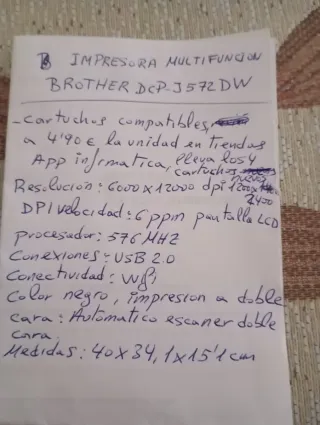 IMPRESORA MULTIFUNCION
BROTHER DCP-J572DW
- cartuchos compatibles,
a 4'90 € la unidad en tiendas
App informatica, lleva los 4
cartuchos nuevos
Resolucion: 6000x12000 dpi 1200x
2400
DPI velocidad: 6 ppm pantalla LCD
procesador: 576 MHZ
Conexiones: USB 2.0
Conectividad: Wifi
Color negro, impresion a doble
cara: Automatico escaner doble
cara.
Medidas: 40x34,1x15'1 cm